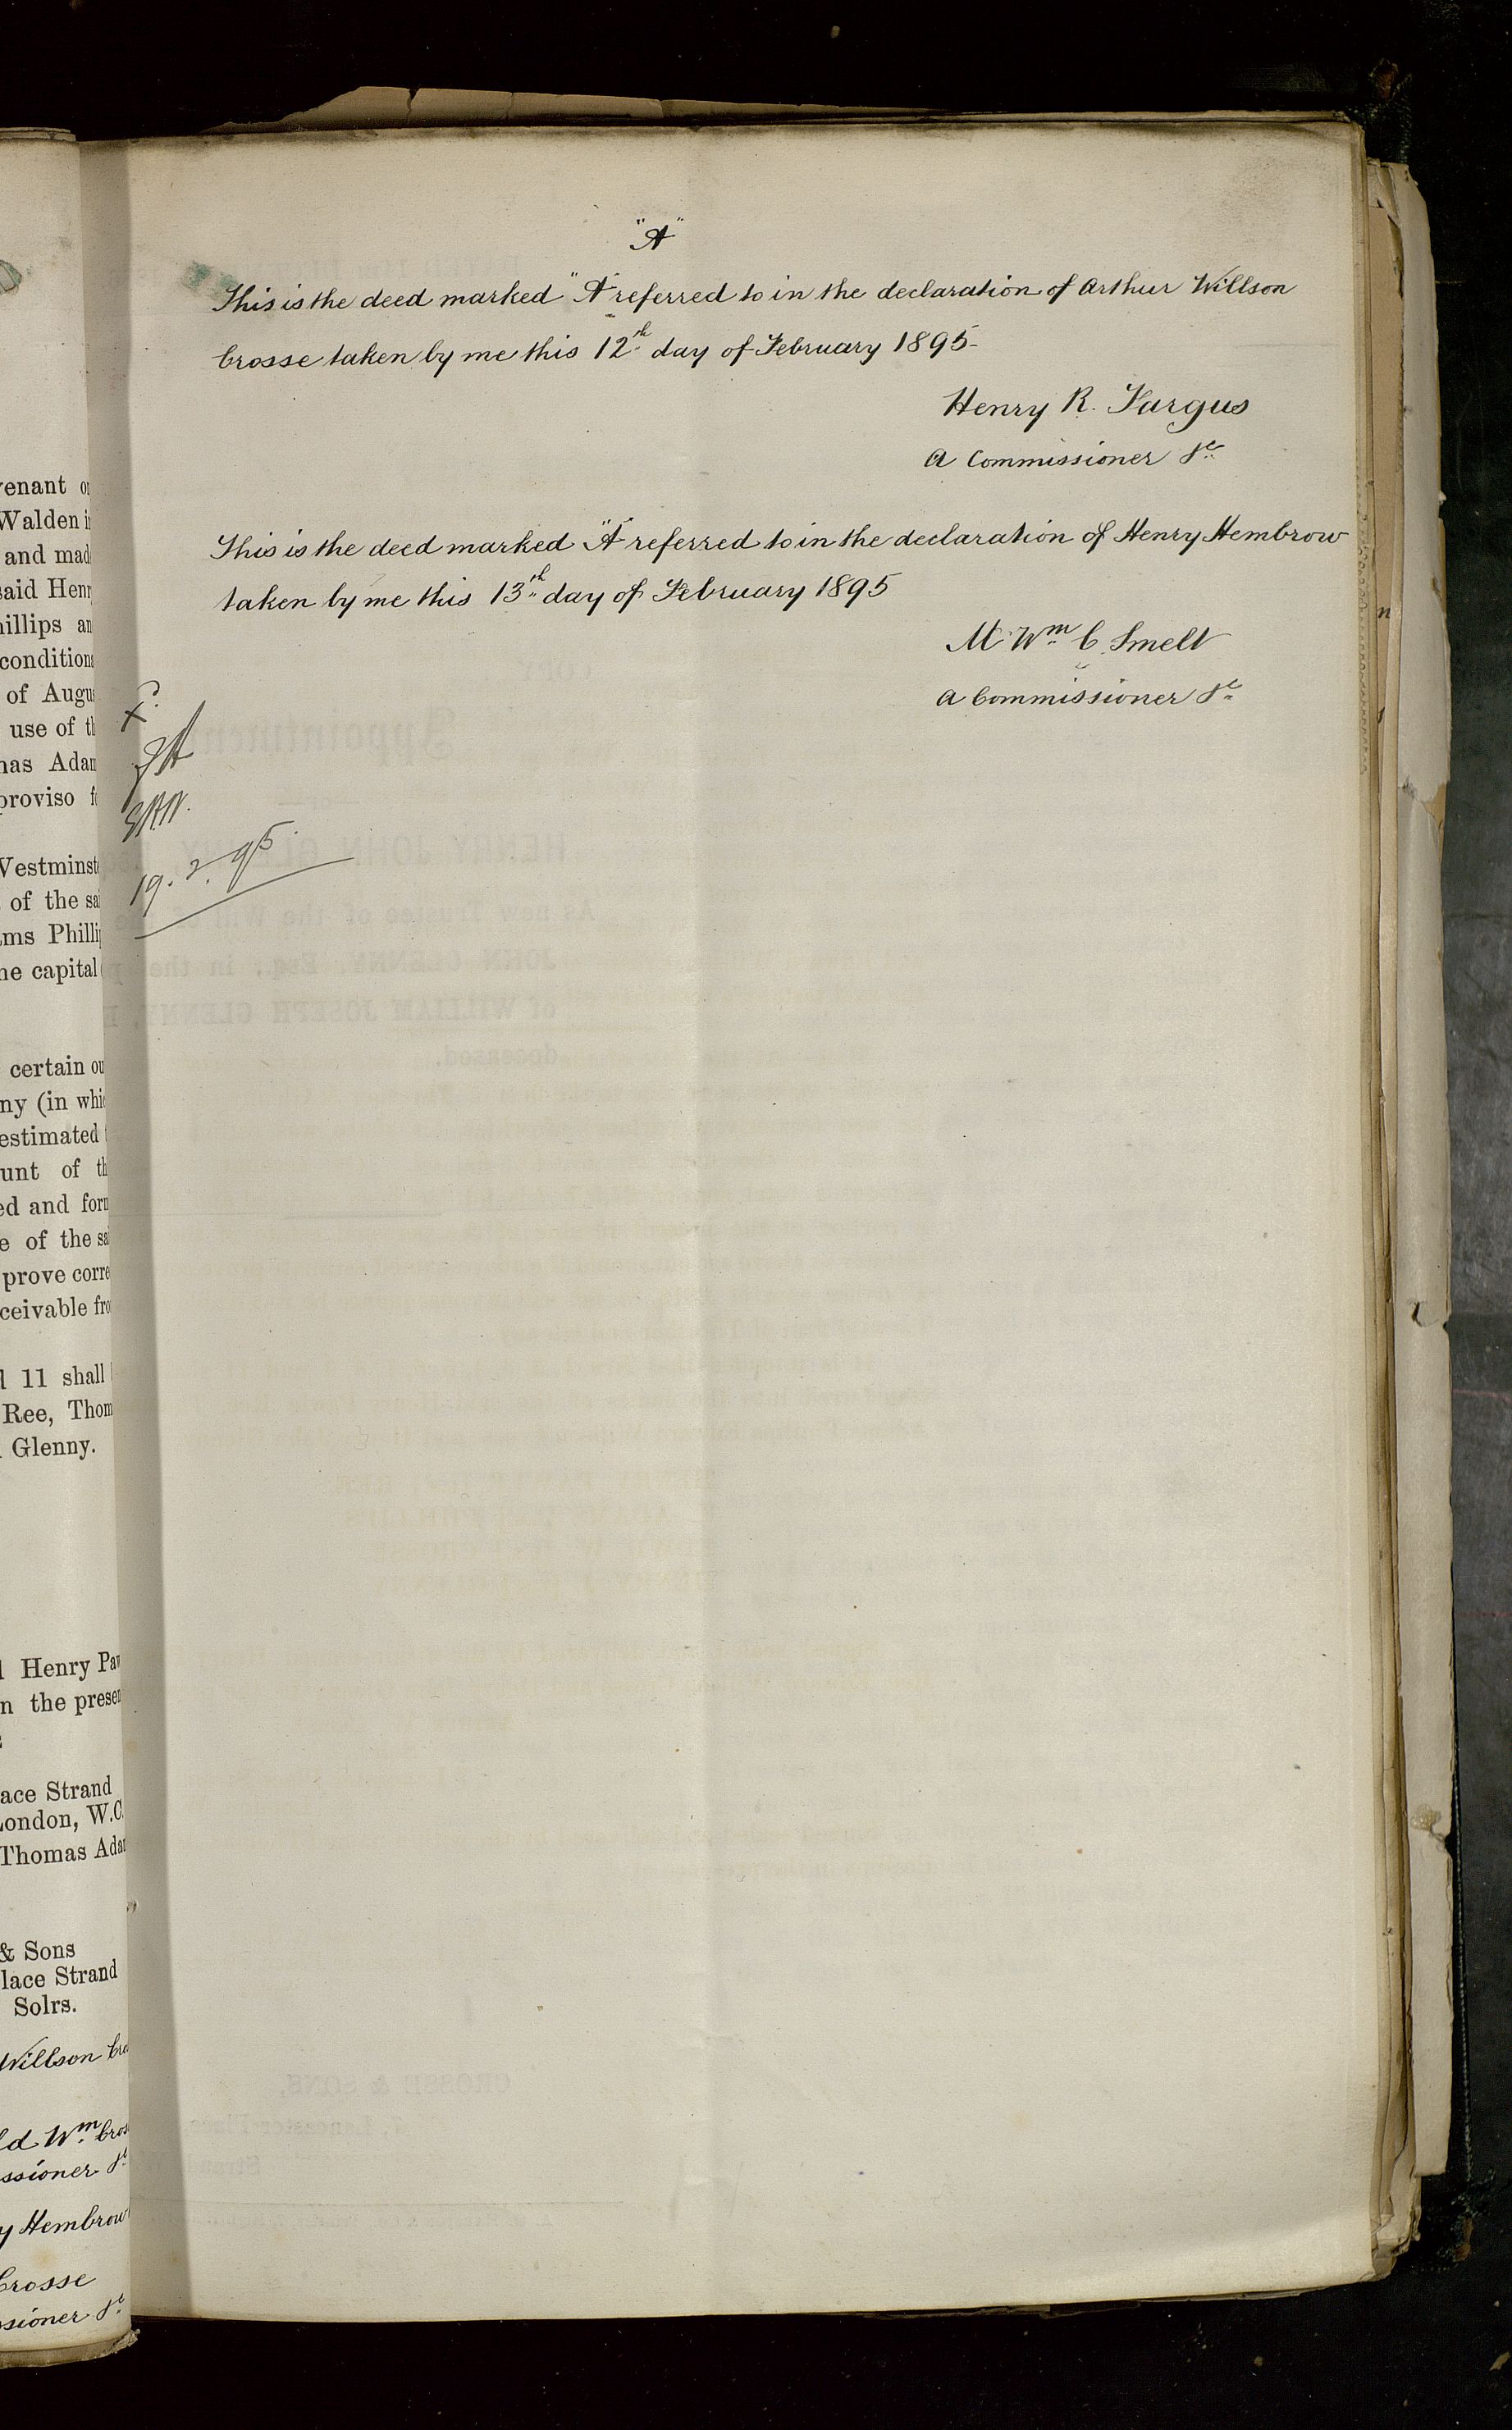 "A"
This is the deed marked "A" referred to in the declaration of Arthur Willson
Crosse taken by me this 12th day of February 1895
Henry R. Fargus
A Commissioner &c
This is the deed marked "A" referred to in the declaration of Henry Hembrow
taken by me this 13th day of February 1895
M Wm C. Smelt
A Commissioner &c
19. 2. 95
venant
Walden
and mad
said Henr
hillips an
condition
of Augu
use of th
mas Adam
proviso f
Westminst
of the sa
ms Phillip
he capital
certain ou
ny (in whi
estimated
unt of th
ed and form
e of the sa
prove corre
ceivable fro
11 shall
Ree, Thom
Glenny.
Henry Paw
n the presen
ace Strand
London, W.C.
Thomas Adam
& Sons
lace Strand
Solrs.
Willson Cro
ld Wm Cros
ssioner &c
y Hembrow
Crosse
ssioner &c